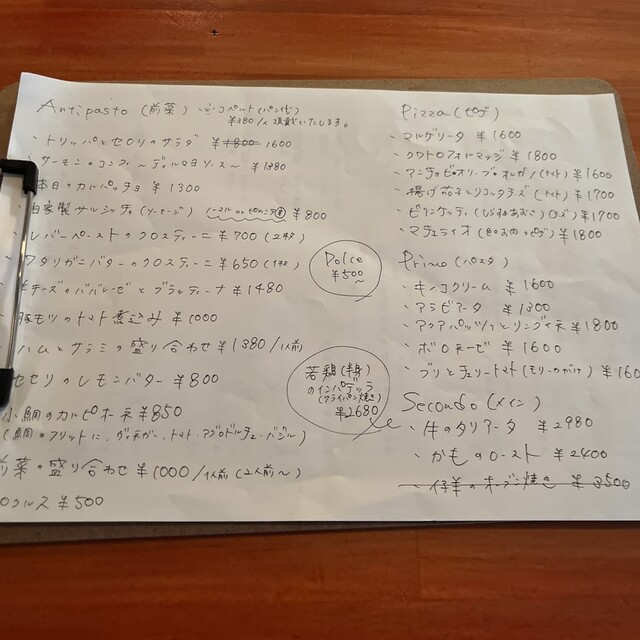 Antipasto (前菜) ※コペルト(パン代)
¥380/人頂戴いたします。
・トリッパとセロリのサラダ ¥1800 1600
・サーモンのコンフィ〜ディルマヨソース〜 ¥1380
本日のカルパッチョ ¥1300
自家製サルシッチャ(ソーセージ) ¥800
レバーペーストのクロスティーニ ¥700 (2ヶ)
ワタリガニバターのクロスティーニ ¥650
チーズのババレーゼとブラッティーナ ¥1480
豚モツのトマト煮込み ¥1000
ハムとサラミの盛り合わせ ¥1380/1人前
セセリのレモンバター ¥800
小鯛のカルピオーネ ¥850
(鯛のフリットに、ヴィネガー、トマト・アグロドルチェ・バジル)
前菜の盛り合わせ ¥1000/1人前 (2人前〜)
ロクルス ¥500
Dolce
¥500〜
若鶏(半身)
のインパデッラ
(フライパン焼き)
¥2680
Pizza (ピザ)
マルゲリータ ¥1600
・クワトロフォルマッジ ¥1800
・アンチョビオリーブオレガノ(トマト) ¥1600
・揚げ茄子とリコッタチーズ(トマト) ¥1700
・ビアンケッティ(しらすとあおさ) ¥1700
・マチェライオ ¥1800
Primo (パスタ)
・キノコクリーム ¥1600
・アラビアータ ¥1300
・アクアパッツァとリングイネ ¥1800
・ボロネーゼ ¥1600
・ブリとチェリートマト ¥160
Secondo (メイン)
・牛のタリアータ ¥2980
・かものロースト ¥2400
・仔羊のオーブン焼き ¥3500